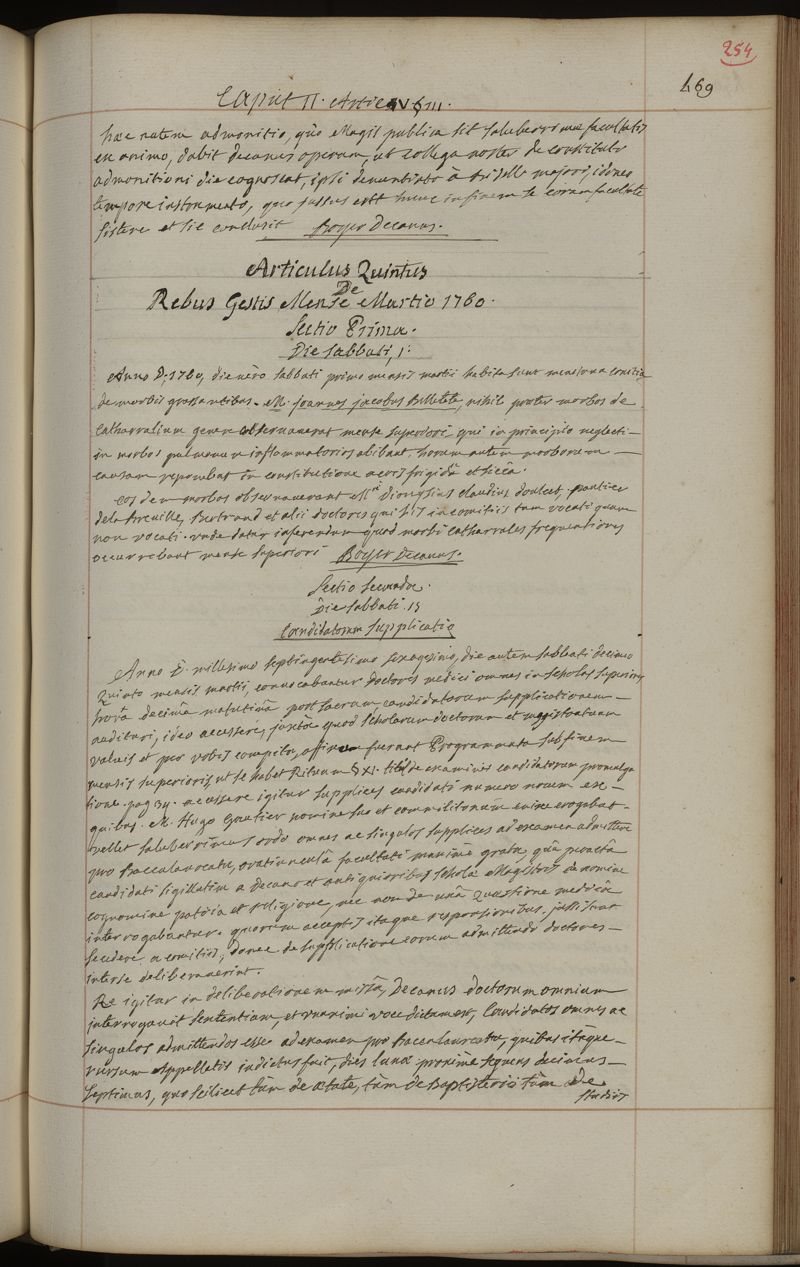 254
469
Caput II. Artic. IV § III.
hæc autem admonitio, quo magis publica sit saluberrimæ facultatis
en animo, dabit decanus operam, ut collega noster de constituto
admonitioni die cognoscat, ipsi denuntiato à majori, idoneo
tempore instrumento, quo jussus erit hunc in finem se coram facultate
sistere et sic conclusit Boyer Decanus.
Articulus Quintus
De
Rebus Gestis Mense Martio 1760.
Sectio Prima.
Die sabbati, 1.
Anno D. 1760, die vero sabbati primo mensis martii habita sunt menstrua comitia
de morbis grassantibus. M. joannes jacobus Belletete, nihil præter morbos de
Catharralium genere observaverat mense superiori qui in principio neglecti
in morbos pulmonum inflammatorios abibant, horum autem morborum
causam reponebat in constitutione aeris frigidâ et siccâ.
Eosdem morbos observaverant M.ri dionysius claudius doulcet, pautier
dela Breuille, Bertrand et alii doctores qui his in comitiis tam vocati quam
non vocati. unde datur inferendum quod morbi catharrales frequentiores
occurrebant mense superiori Boyer Decanus.
Sectio secunda.
Die sabbati. 15
Candidatorum supplicatio
Anno D. millesimo septingentesimo sexagesimo, die autem sabbati decimo
Quinto mensis martii, convocabantur doctores medici omnes in scholas superiores
horâ decimâ matutinâ post sacrum, candidatorum supplicationem
audituri, ideo accessere, juxta quod scholarum doctorum et magistratuum
valvis et per vobis compita, affixa fuerant Programmata sub finem
mensis superioris ut se habet Rituum § XI. titul de examine candidatorum promulga
tione. pag 34. accessere igitur supplices candidati numero novem ex
quibus. M. Hugo Gautier nomine suo et commilitonum enixe rogabat
vellet saluberrimus ordo omnes ac singulos supplices ad examen admittere
pro baccalaureatu, oratiunculâ facultati maxime gratâ, quâ peractâ
candidati sigillatim a Decano et antiquioribus scholæ Magistris de nomine
cognomine patria et religione, nec non de unâ Quæstione medicæ
interrogabantur. quorum acceptis itaque responsionibus. jussi sunt
secedere a comitiis, donec de supplicatione eorum admittendâ doctores
inter se deliberaverint.
Re igitur in deliberationem missâ, Decanus doctorum omnium
interrogavit sententiam, et unanimi voce dictum est, Candidatos omnes ac
singulos admittendos esse ad examen pro baccalaureatu, quibus itaque
rursum appellatis indictus fuit, dies lunæ proxime sequens decimus
septimus, quo scilicet tùm de ætate, tùm de Baptisterio tùm De
studiis